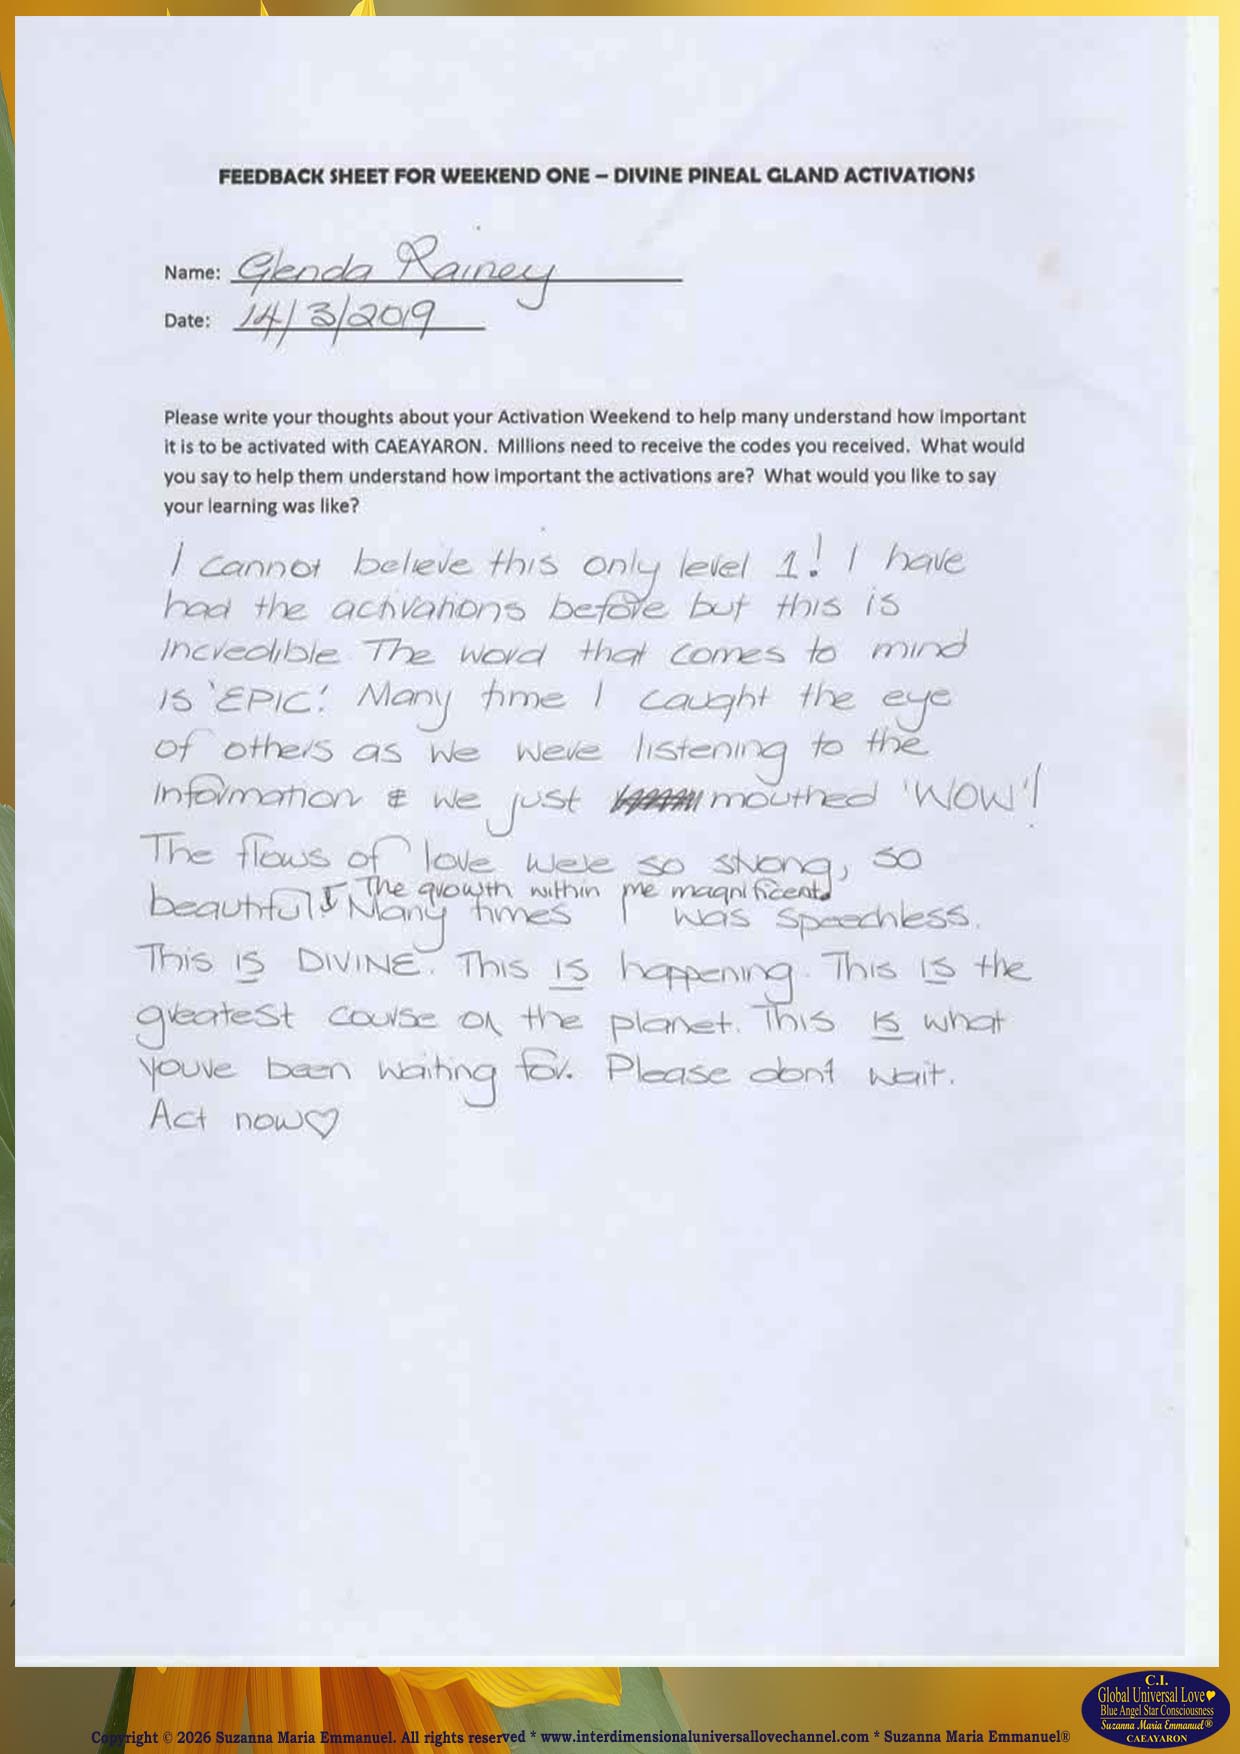 FEEDBACK SHEET FOR WEEKEND ONE – DIVINE PINEAL GLAND ACTIVATIONS
Name: Glenda Rainey
Date: 14/3/2019
Please write your thoughts about your Activation Weekend to help many understand how important
it is to be activated with CAEAYARON. Millions need to receive the codes you received. What would
you say to help them understand how important the activations are? What would you like to say
your learning was like?
I cannot believe this only level 1! I have
had the activations before but this is
incredible. The word that comes to mind
is 'EPIC'. Many time I caught the eye
of others as we were listening to the
information & we just mouthed 'WOW'!
The flows of love were so strong, so
beautiful! The growth within me magnificent.
Many times I was speechless.
This is DIVINE. This is happening. This is the
greatest course on the planet. This is what
youve been waiting for. Please dont wait.
Act now♡
C.I.
Global Universal Love♥
Blue Angel Star Consciousness
Suzanna Maria Emmanuel®
CAEAYARON
Copyright © 2026 Suzanna Maria Emmanuel. All rights reserved * www.interdimensionaluniversallovechannel.com * Suzanna Maria Emmanuel®